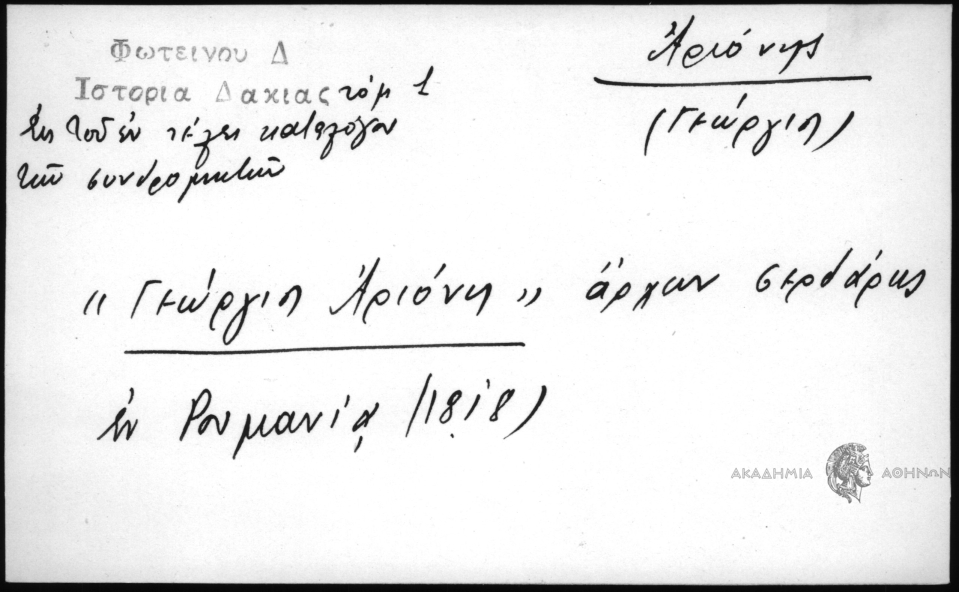 Φωτεινου Δ
Ιστορια Δακιας τόμ 1
Ἐκ τοῦ ἐν τέλει καταλόγου
τῶν συνδρομητῶν
Ἀριόνης
(Γεώργιος)
" Γεώργιος Ἀριόνης " ἄρχων σερδάρης
ἐν Ρουμανίᾳ (1818)
ΑΚΑΔΗΜΙΑ ΑΘΗΝΩΝ